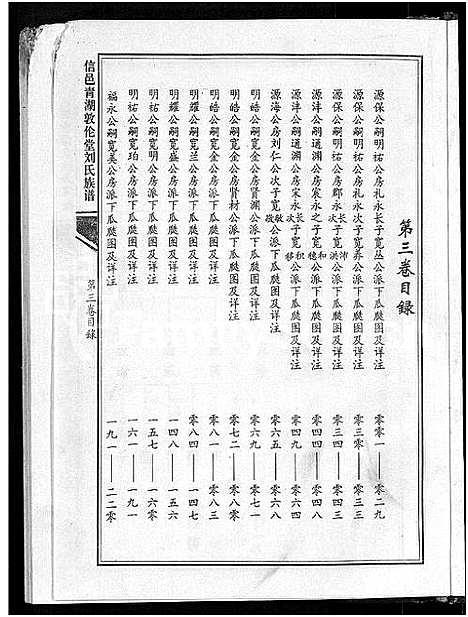 第三卷目録
源保公嗣明祐公房礼永长子宽丛公派下瓜瓞图及详注 零零一——零二九
源保公嗣明祐公房礼永次子宽养公派下瓜瓞图及详注 零三零——零三三
源保公嗣明祐公房郿永长次子宽沛洪公派下瓜瓞图及详注 零三四——零四三
源沣公嗣道渊公房宸永之子宽和穗公派下瓜瓞图及详注 零四四——零四八
源沣公嗣道渊公房宋永长次子宽积移公派下瓜瓞图及详注 零四九——零四九
源海公房刘仁公次子宽敏敬公派下瓜瓞图及详注 零六五——零五四
明皓公嗣宽金公房贤渊公派下瓜瓞图及详注 零六九——零七一
明皓公嗣宽金公房贤材公派下瓜瓞图及详注 零七二——零八零
明皓公嗣宽金公房派下瓜瓞图及详注 零八一——零八三
明耀公嗣宽兰公房派下瓜瓞图及详注 零八四——一四七
明耀公嗣宽盛公房派下瓜瓞图及详注 一四八——一五六
明祐公嗣宽明公房派下瓜瓞图及详注 一五七——一六零
明祐公嗣宽珀公房派下瓜瓞图及详注 一六一——一九一
福永公嗣宽美公房派下瓜瓞图及详注 一九一——二二零
信邑青湖敦伦堂刘氏族谱
第三卷目録